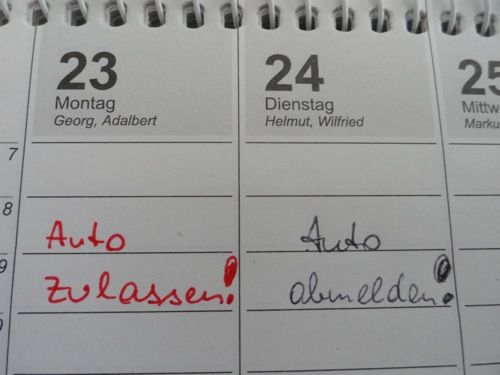 23
Montag
Georg, Adalbert
24
Dienstag
Helmut, Wilfried
25
Mittw
Marku
7
8
9
Auto
zulassen!
Auto
abmelden!